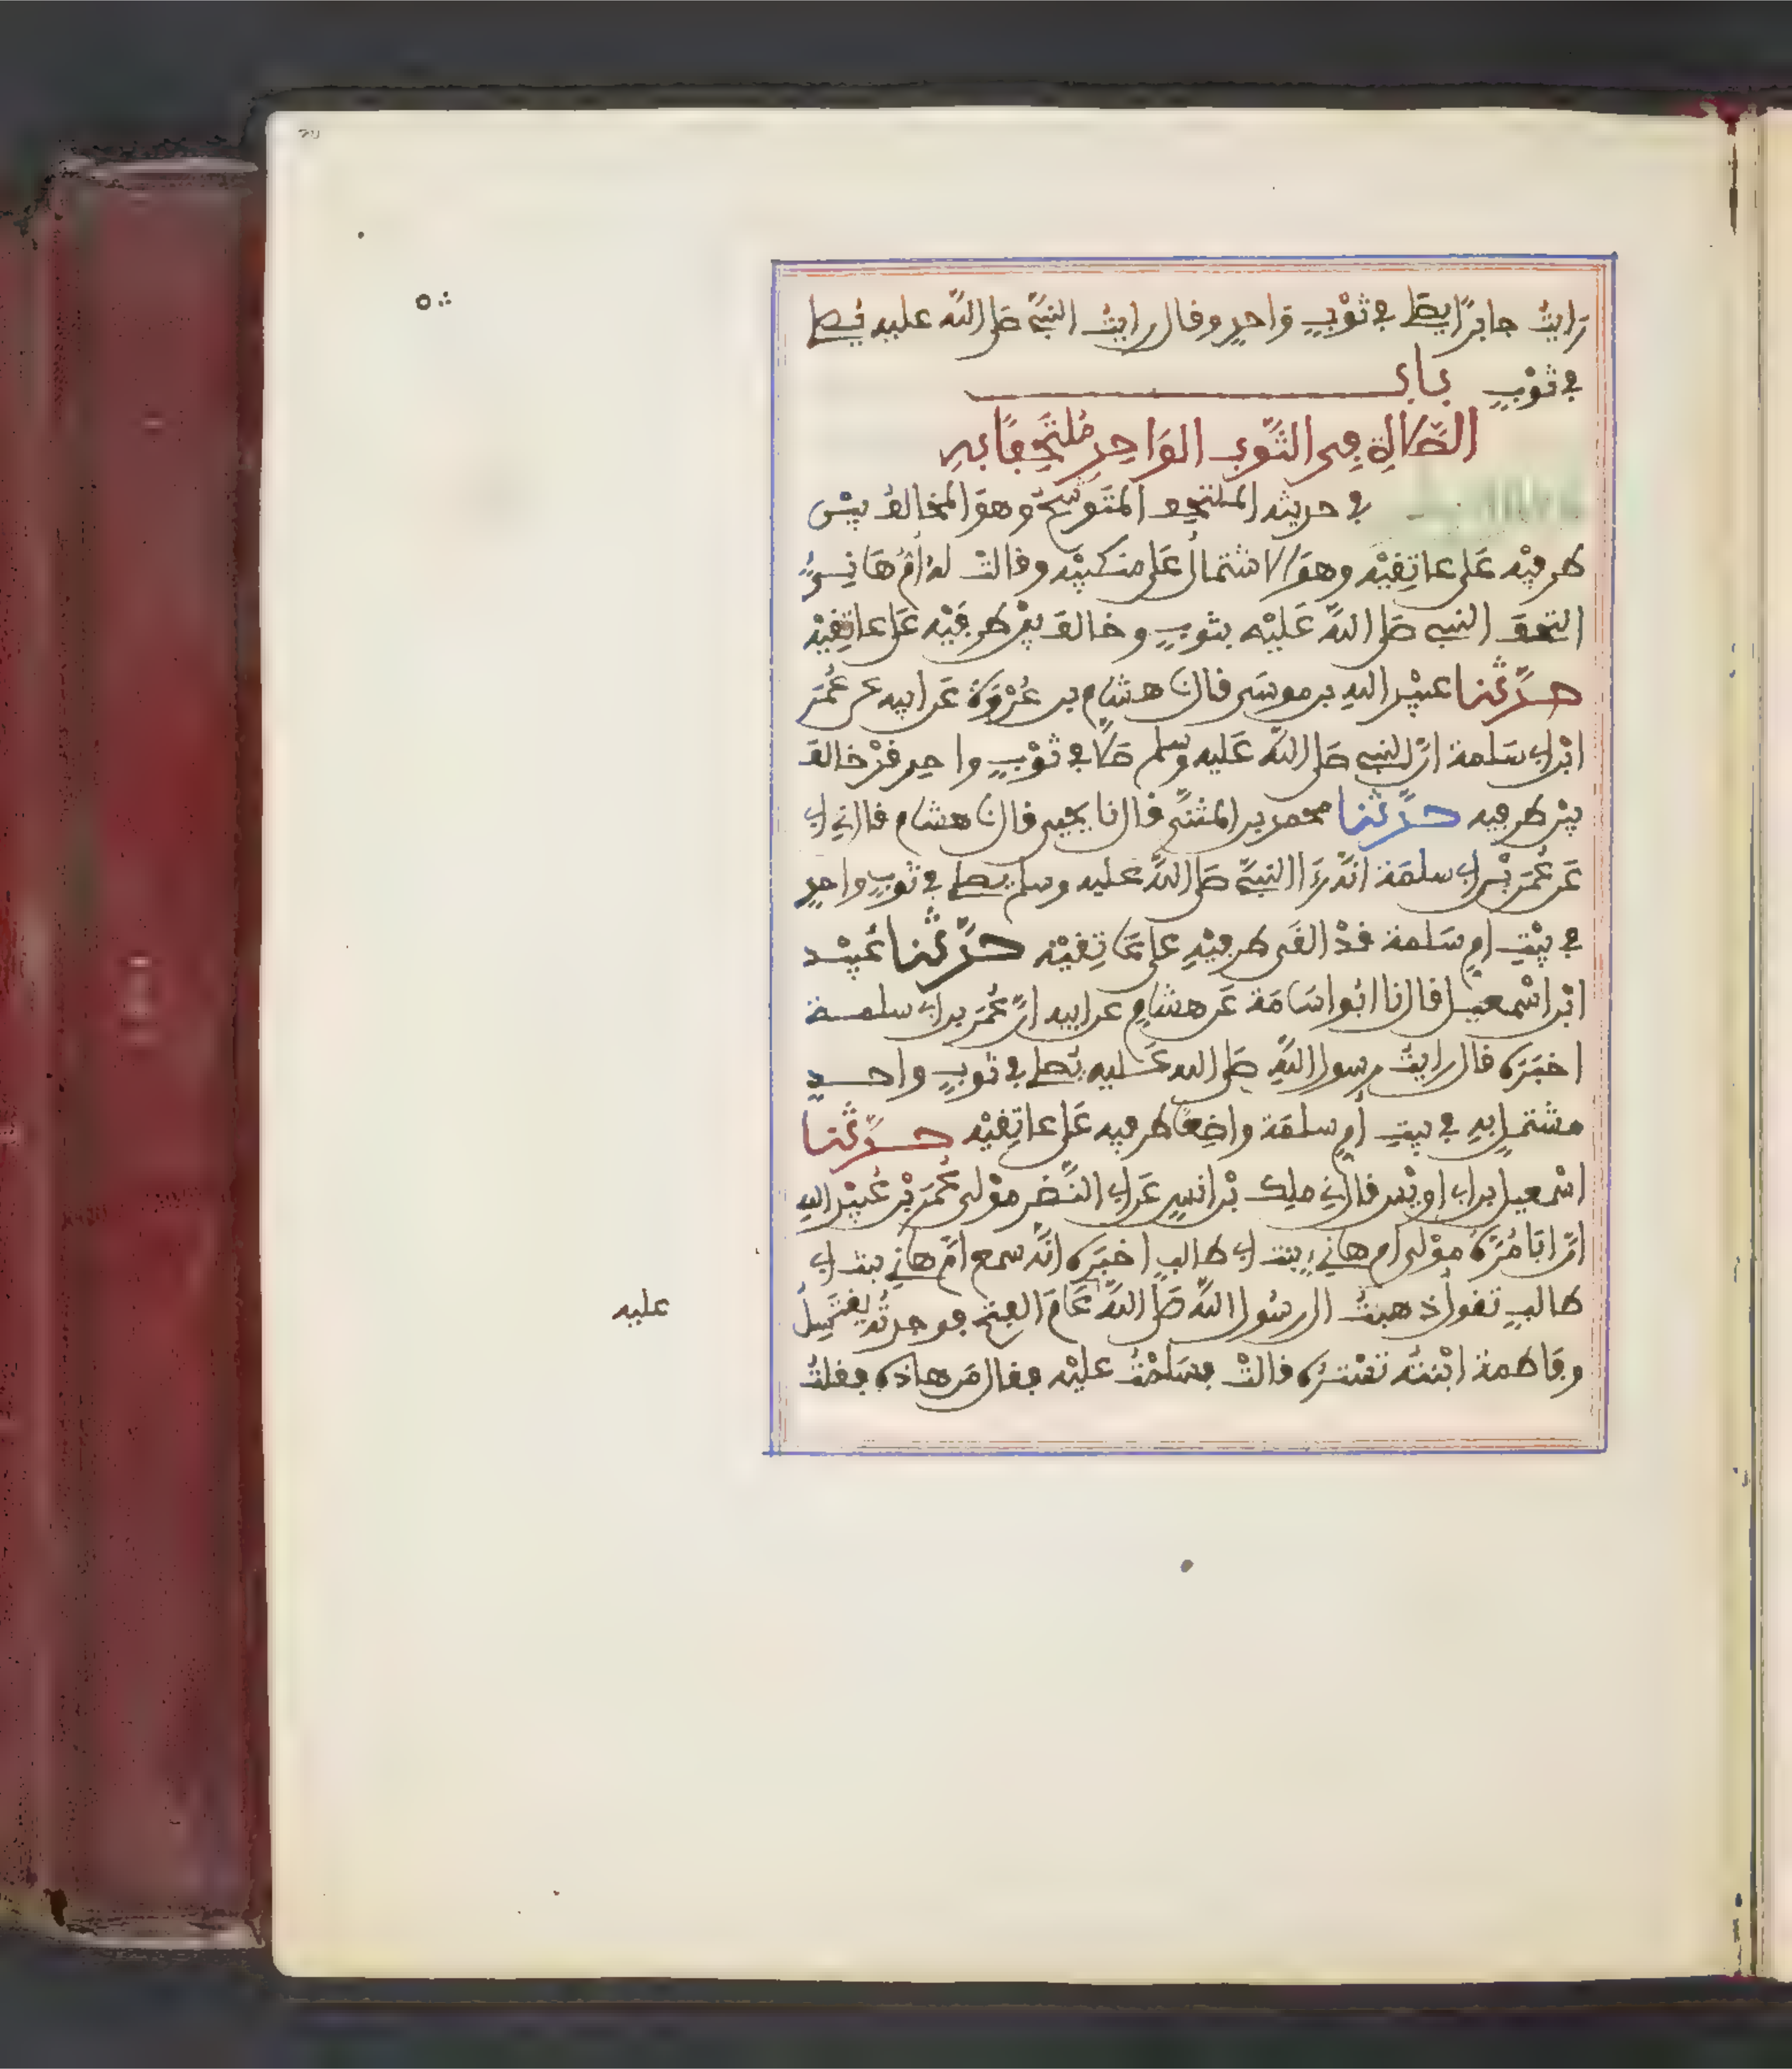 رَايتُ جابرًا يصلي في ثَوْبٍ وَاحِدٍ وقال رايتُ النبيَّ صلى اللهُ عليه يُصلي
في ثوْبٍ بابُ
الصَّلاةِ في الثَّوبِ الوَاحِدِ مُلتَحِفًا بهِ
في حديثه الملتحف المتَوشّحُ وهوَ المخالفُ بيْن
طرفيْه عَلى عاتِقَيْه وهوَ الاشتمالُ عَلى منكبيْه وقالت له أمُّ هَانِئٍ
التحفَ النبي صَلى اللهُ عَلَيْه بثوبٍ وخالفَ بيْن طرفَيْه عَلى عاتِقَيْه
حدَّثنا عبيْد الله بن موسَى قال نا هشام بن عُرْوَةَ عَن ابيه عن عُمَرَ
ابْن ابي سَلمة انَّ النبي صَلى اللهُ عَليه وسلم صَلَّى في ثوْبٍ واحدٍ قدْ خالفَ
بيْن طرفيه حدَّثنا محمد بن المثنَّى قال نا يحيى قال نا هشام قال ني ابي
عَن عُمَرَ بْن ابي سلمَة انَّه رَءَا النبيَّ صَلى اللهُ عليه وسلم يصلي في ثوبٍ واحدٍ
في بيْتِ امِ سَلمة قدْ القَى طرفيْهِ عَلى عَاتِقَيْه حدَّثنا عُبيْد
ابْن اسْمعيل قال نا ابُو اسَامَة عَن هشامٍ عن ابيه انَّ عُمَرَ بن ابي سلمة
اخبَرَه قال رايتُ رسول اللهِ صَلى الله عَليه يُصلي في ثوبٍ واحدٍ
مشتملا بهِ في بيتِ أمِ سلمَة واضِعًا طرفيه عَلى عاتِقَيْه حدَّثنا
اسْمعيل بن ابي اويْس قال ني ملِك بْن انسٍ عَن ابي النَّضر موْلى عُمَرَ بْن عُبيْد اللهِ
انَّ ابَا مُرَّةَ موْلى ام هانيءٍ بنت ابي طالبٍ اخبَرَه انَّه سمع امَّ هاني بنت ابي
طالبٍ تقول ذهبتُ الى رسُول اللهِ صَلى اللهُ عَامَ الفتح فوجدتُه يغتَسِلُ
عليه
وفَاطمة ابْنتُه تَسْتُرُه قالتْ فسَلمْتُ عليْه فقال مَن هاذه فقلتُ